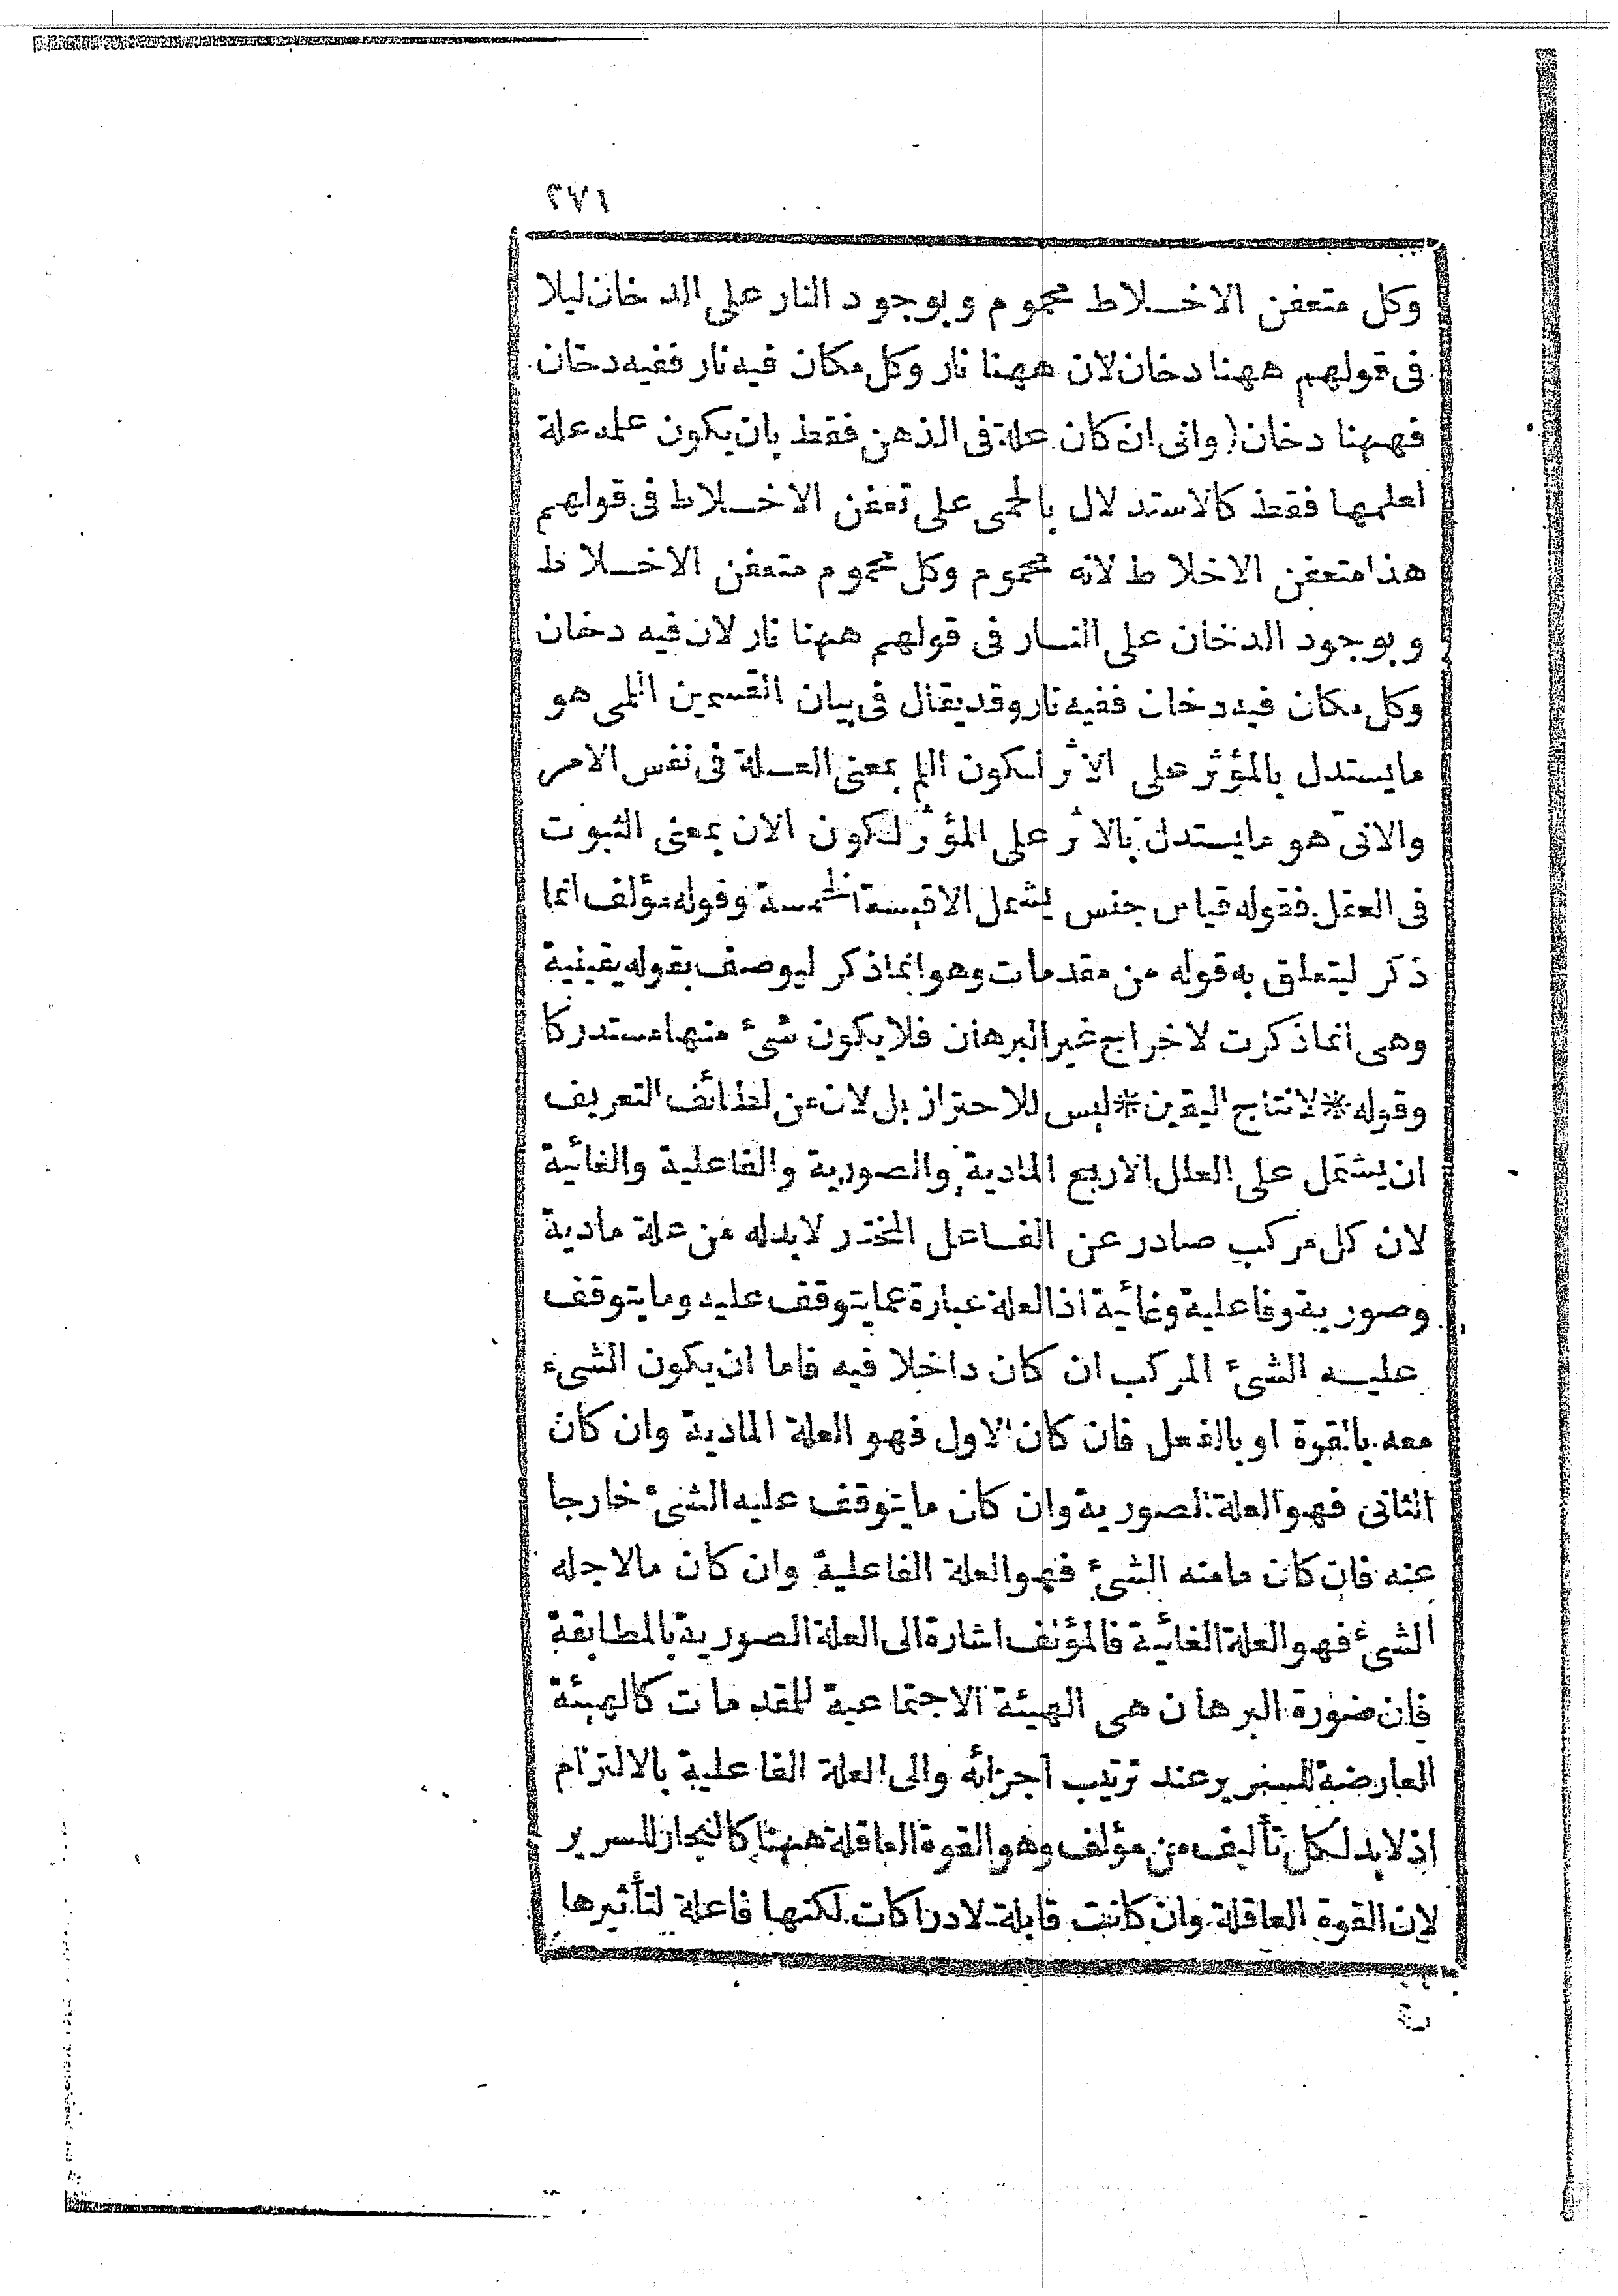 ٢٧١
وكل متعفن الاخـلاط محموم وبوجود النار على الدخان ليلا
فى قولهم ههنا دخان لان ههنا نار وكل مكان فيه نار ففيه دخان
فههنا دخان (وانى ان كان علة فى الذهن فقط بان يكون علمه علة
لعلمها فقط كالاستدلال بالحمى على تعفن الاخـلاط فى قولهم
هذا متعفن الاخلاط لانه محموم وكل محموم متعفن الاخـلاط
وبوجود الدخان على النـار فى قولهم ههنا نار لان فيه دخان
وكل مكان فيه دخان ففيه نار وقد يقال فى بيان القسمين اللمى هو
ما يستدل بالمؤثر على الاثر لكون اللم بمعنى العـلة فى نفس الامر
والانى هو ما يستدل بالاثر على المؤثر لكون الان بمعنى الثبوت
فى العقل فقوله قياس جنس يشمل الاقيسة الخمسة وقوله مؤلف انما
ذكر ليتعلق به قوله من مقدمات وهو انما ذكر ليوصف بقوله يقينية
وهى انما ذكرت لاخراج غير البرهان فلا يكون شئ منها مستدركا
وقوله * لانتاج اليقين * ليس للاحتراز بل لان من لطائف التعريف
ان يشتمل على العلل الاربع المادية والصورية والفاعلية والغائية
لان كل مركب صادر عن الفـاعل المختار لا بد له من علة مادية
وصورية وفاعلية وغائية اذ العلة عبارة عما يتوقف عليه وما يتوقف
عليـه الشئ المركب ان كان داخلا فيه فاما ان يكون الشئ
معه بالقوة او بالفعل فان كان الاول فهو العلة المادية وان كان
الثانى فهو العلة الصورية وان كان ما يتوقف عليه الشئ خارجا
عنه فان كان ما منه الشئ فهو العلة الفاعلية وان كان ما لاجله
الشئ فهو العلة الغائية فالمؤلف اشارة الى العلة الصورية بالمطابقة
فان صورة البرهان هى الهيئة الاجتماعية للمقدمات كالهيئة
العارضة للسرير عند ترتيب اجزائه والى العلة الفاعلية بالالتزام
اذ لا بد لكل تأليف من مؤلف وهو القوة العاقلة ههنا كالنجار للسرير
لان القوة العاقلة وان كانت قابلة لادراكات لكنها فاعلة لتأثيرها